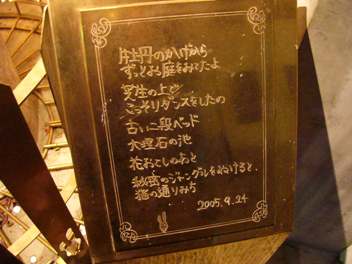 牡丹のかげから
ずっとお庭をみてたよ
芝生の上で
こっそりダンスをしたの
古い二段ベッド
大理石の池
花おこしのあと
秘密のジャングルをぬけると、
猫の通りみち
2005.9.24